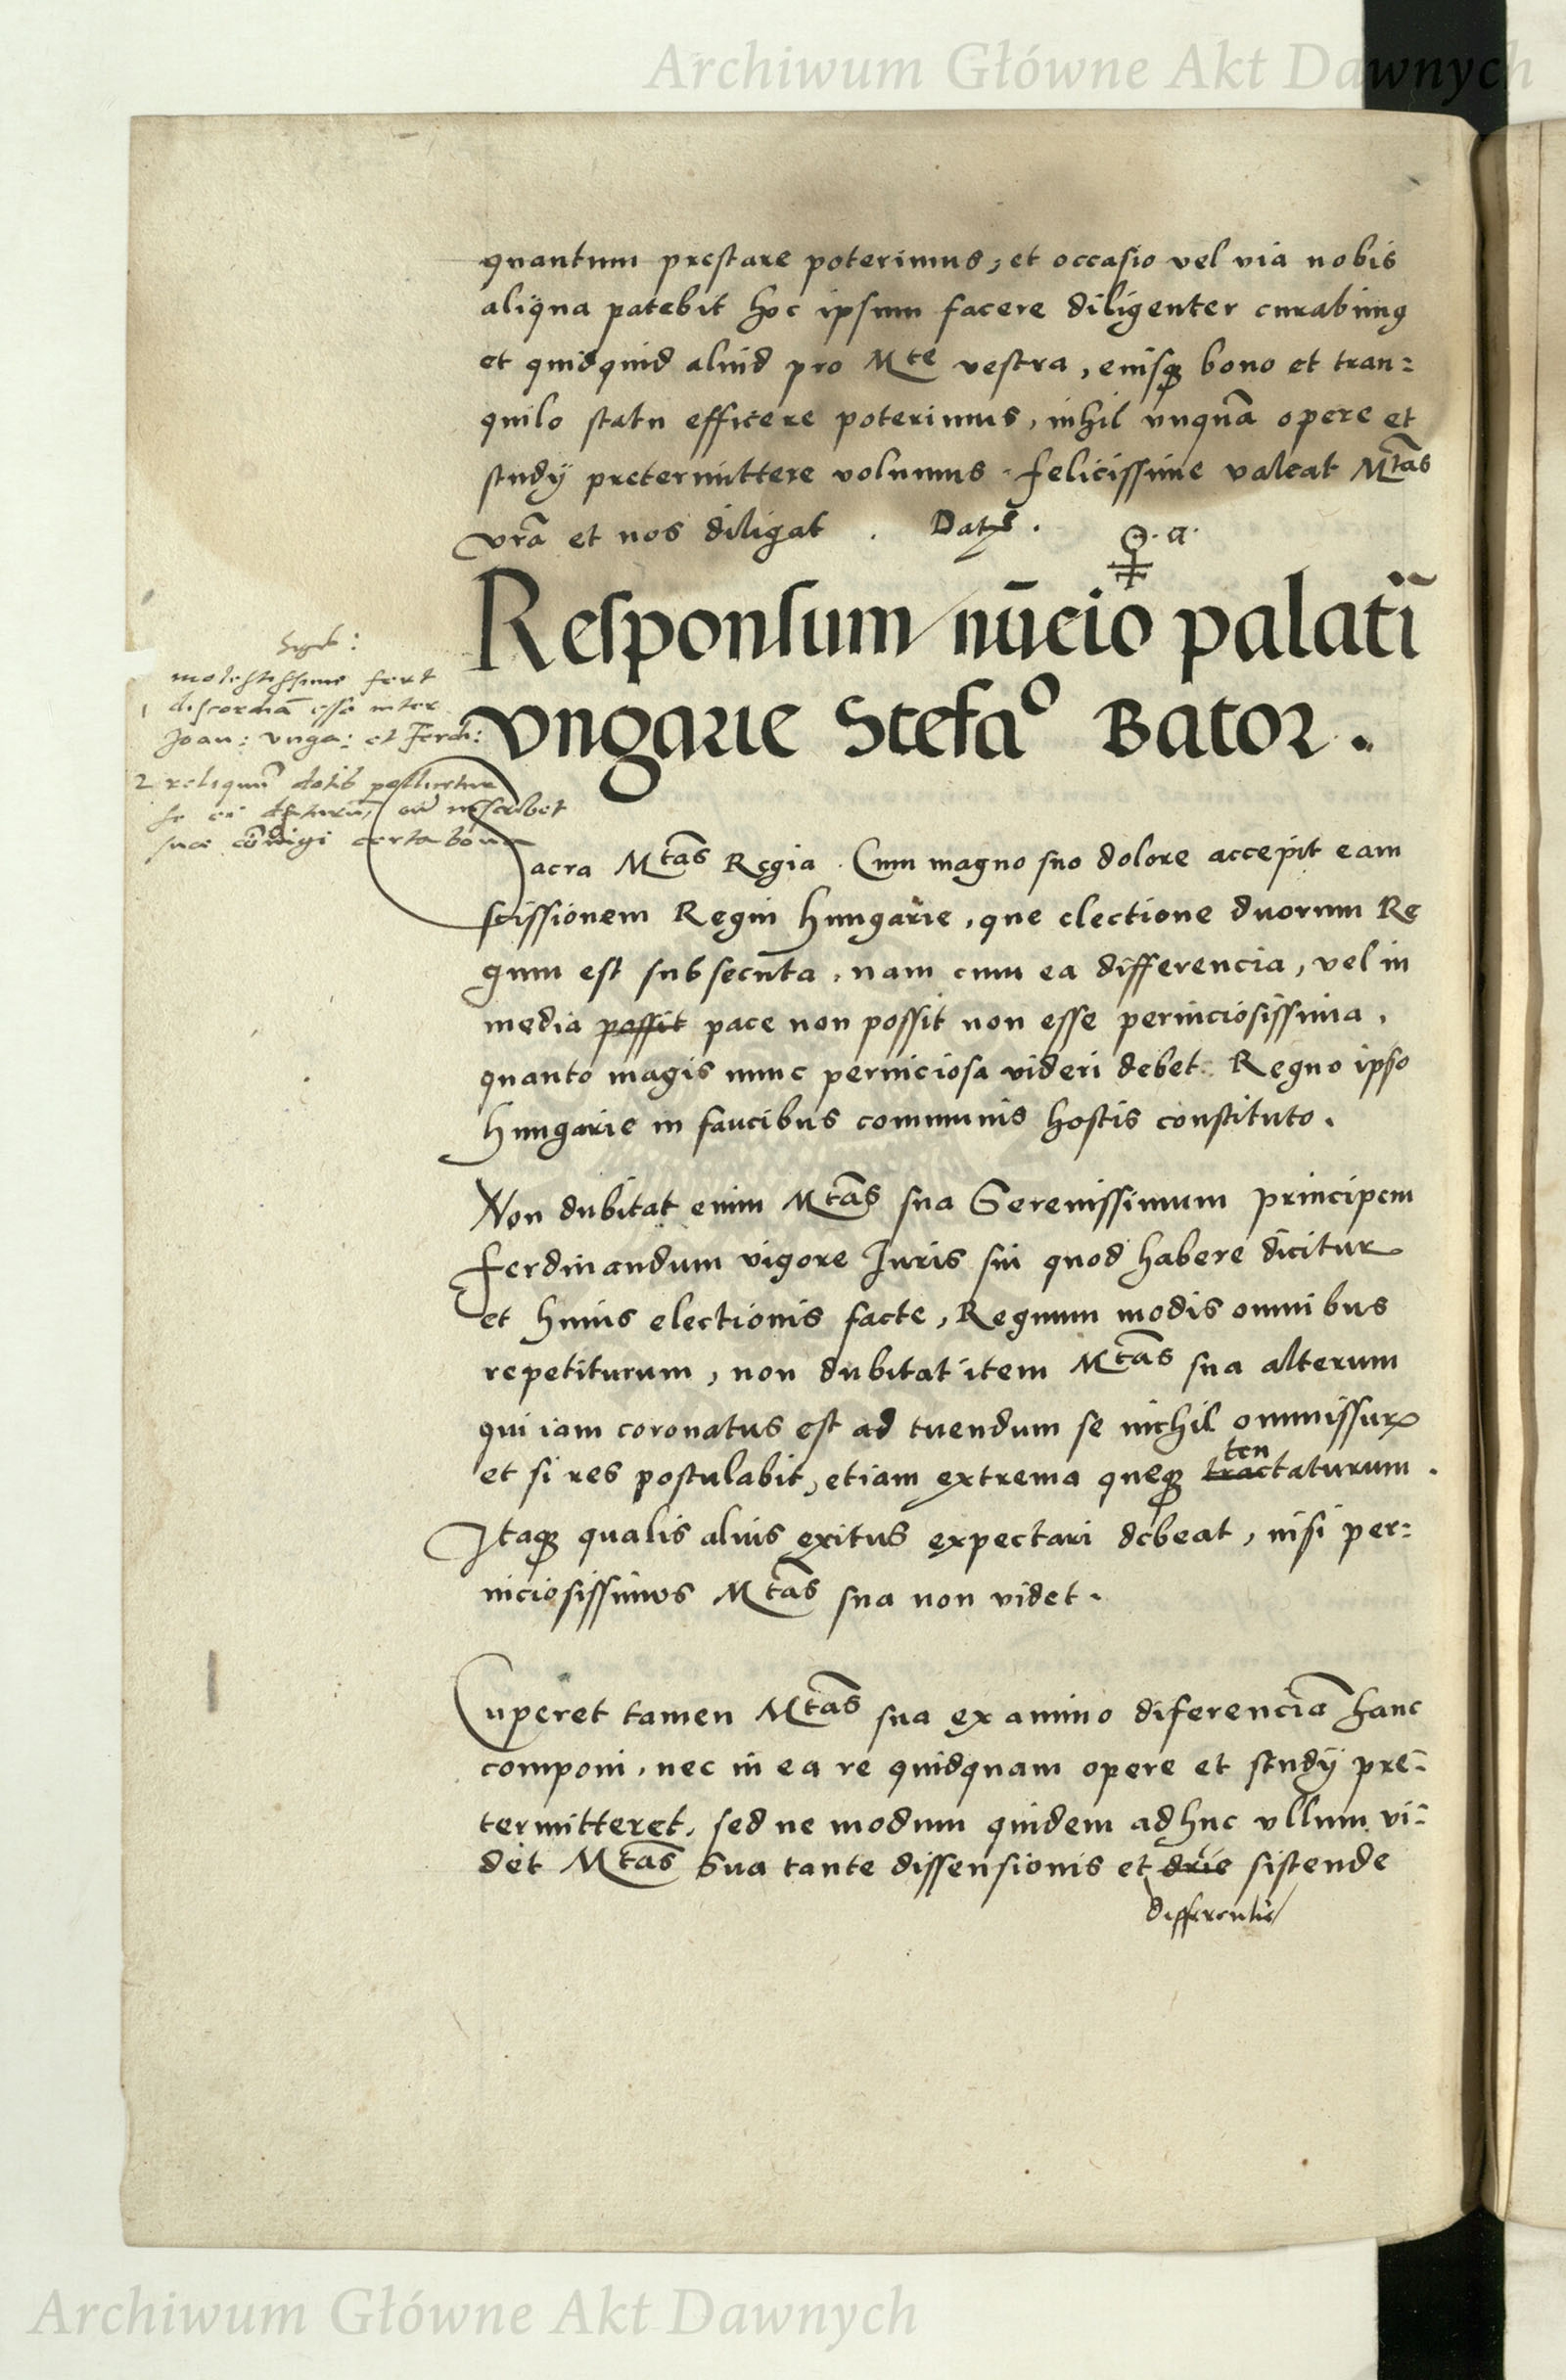 Archiwum Główne Akt Dawnych
quantum prestare poterimus, et occasio vel via nobis
aliqua patebit hoc ipsum facere diligenter curabimus
et quidquid aliud pro Mte vestra, eiusque bono et tran=
quilo statu efficere poterimus, nihil unquã opere et
study pretermittere volumus. felicissime valeat Mtãs
vrã et nos diligat . Datum .
Q. a.
Responsum nūcio palatī
Vngarie Stefaº Bator.
molestissime fert
1 discordiã esse inter
Joan: Vnga: et Ferdi:
2 reliquũ dotis
se ei inscribet
sue certa bona
Sacra Mtãs Regia. Cum magno suo dolore accepit eam
scissionem Regni Hungarie, que electione duorum Re
gum est subsecuta, nam cum ea differencia, vel in
media possit pace non possit non esse perniciosissima,
quanto magis nunc perniciosa videri debet. Regno ipso
Hungarie in faucibus communis hostis constituto.
Non dubitat enim Mtãs sua Serenissimum principem
Ferdinandum vigore Iuris sui quod habere dicitur
et huius electionis facte, Regnum modis omnibus
repetiturum, non dubitat item Mtãs sua alterum
qui iam coronatus est ad tuendum se nichil ommissurum
et si res postulabit, etiam extrema queque tractaturum.
ten
Itaque qualis alius exitus expectari debeat, nisi per=
niciosissimus Mtãs sua non videt.
Cuperet tamen Mtãs sua ex animo diferenciã hanc
componi, nec in ea re quidquam opere et study pre=
termitteret, sed ne modum quidem adhuc ullum vi=
det Mtãs Sua tante dissensionis et drie sistende
differentie
Archiwum Główne Akt Dawnych